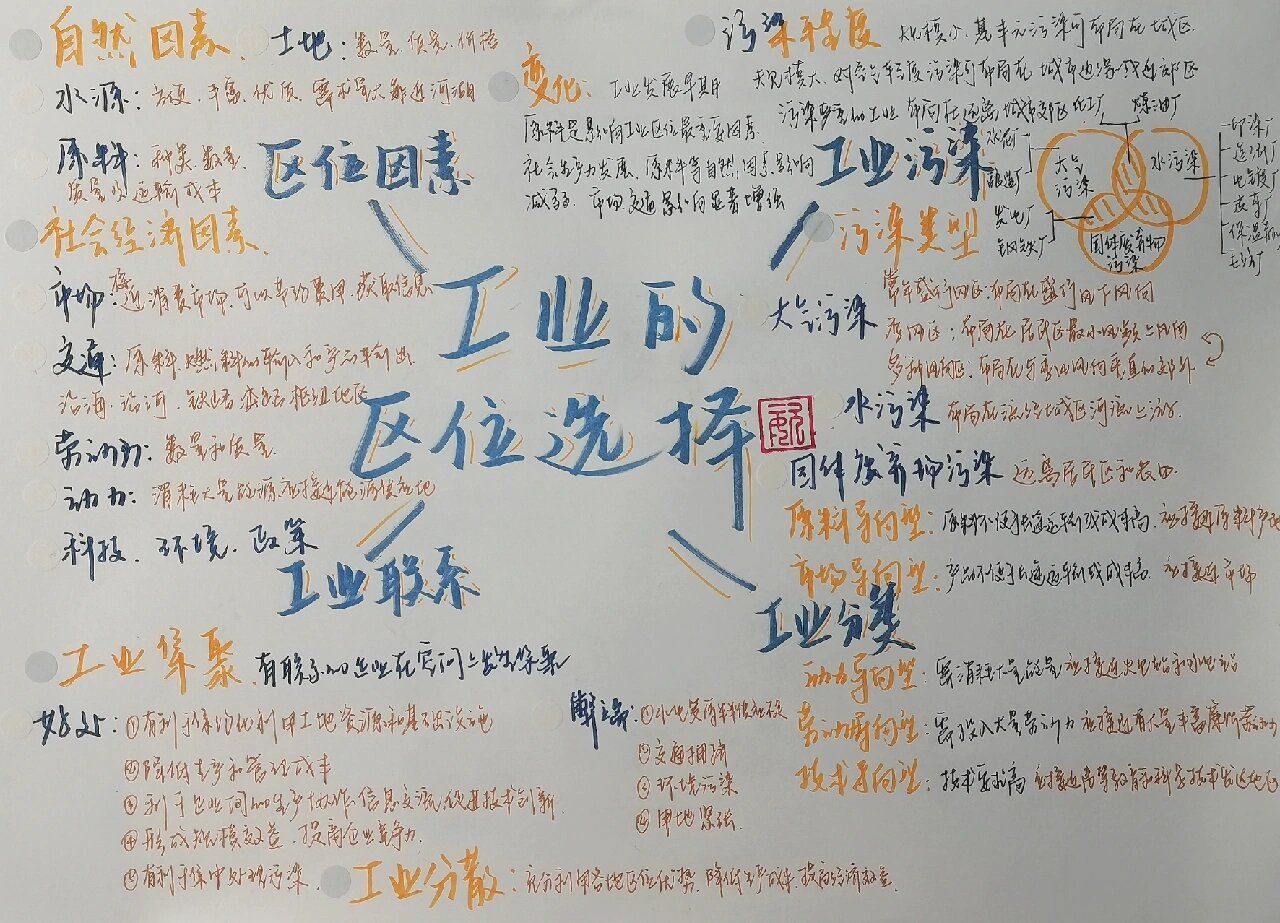 工业的
区位选择
区位因素
自然因素
土地：数量、质量、价格
水源：方便、丰富、优质、需求量大靠近河湖
原料：种类、数量、
质量以及运输成本
社会经济因素
市场：接近消费市场，可以节约费用，获取信息
交通：原料、燃料的输入和产品的输出
沿海、沿河、铁路、枢纽地区
劳动力：数量和质量
动力：消耗大量能源应接近能源供应地
科技、环境、政策
变化：工业发展早期
原料是影响工业区位最重要因素
社会生产力发展，原料等自然因素影响
减弱，市场交通影响显著增强
工业污染
污染程度
规模小，基本无污染可布局在城区
规模大，对空气轻度污染可布局在城市边缘或近郊区
污染严重的工业布局在远离城市郊区
化工厂
炼油厂
水泥厂
酿造厂
发电厂
钢铁厂
大气
污染
水污染
固体废弃物
污染
印染厂
造纸厂
电镀厂
皮革厂
污染类型
大气污染
常年盛行风区：布局在盛行风下风向
季风区：布局在居民区最小风频上风向
布局在与季风风向垂直的郊外
水污染 布局在流经城区河流上游
固体废弃物污染 远离居民区和农田
工业分类
原料导向型：原料不便长途运输或成本高，应接近原料产地
市场导向型：产品不便长途运输或成本高，应接近市场
动力导向型：需消耗大量能量，应接近火电站和水电站
劳动力导向型：需投入大量劳动力，应接近有大量丰富廉价劳动力
技术导向型：技术要求高，应接近高等教育和科学技术发达地区
工业联系
工业集聚 有联系的企业在空间上发生集聚
好处：①有利于集约化利用土地资源和基础设施
②降低生产和管理成本
③利于企业间的生产协作、信息交流，促进技术创新
④形成规模效益，提高企业竞争力
⑤有利于集中处理污染
弊端：
②交通拥挤
③环境污染
④用地紧张
工业分散：充分利用各地区位优势，降低生产成本，提高经济效益